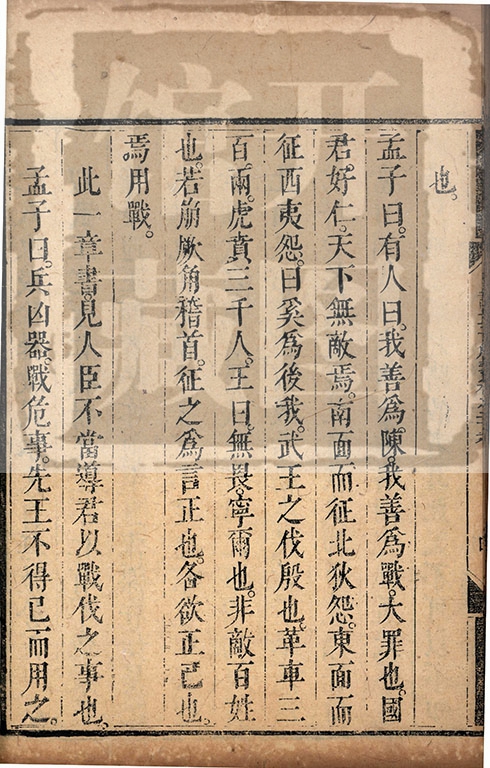 也。
孟子曰。有人曰。我善爲陳。我善爲戰。大罪也。國
君好仁。天下無敵焉。南面而征北狄怨。東面而
征西夷怨。曰奚爲後我。武王之伐殷也。革車三
百兩。虎賁三千人。王曰。無畏。寧爾也。非敵百姓
也。若崩厥角稽首。征之爲言正也。各欲正己也。
焉用戰。
此一章書。見人臣不當導君以戰伐之事也。
孟子曰。兵凶器。戰危事。先王不得已而用之。